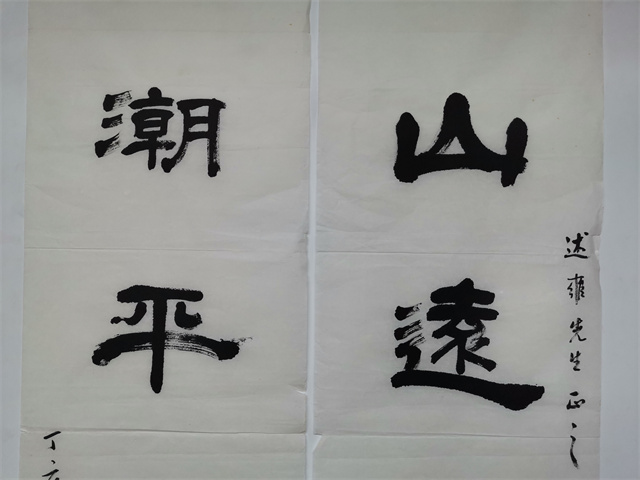 山遠
述雍先生正之
潮平
丁